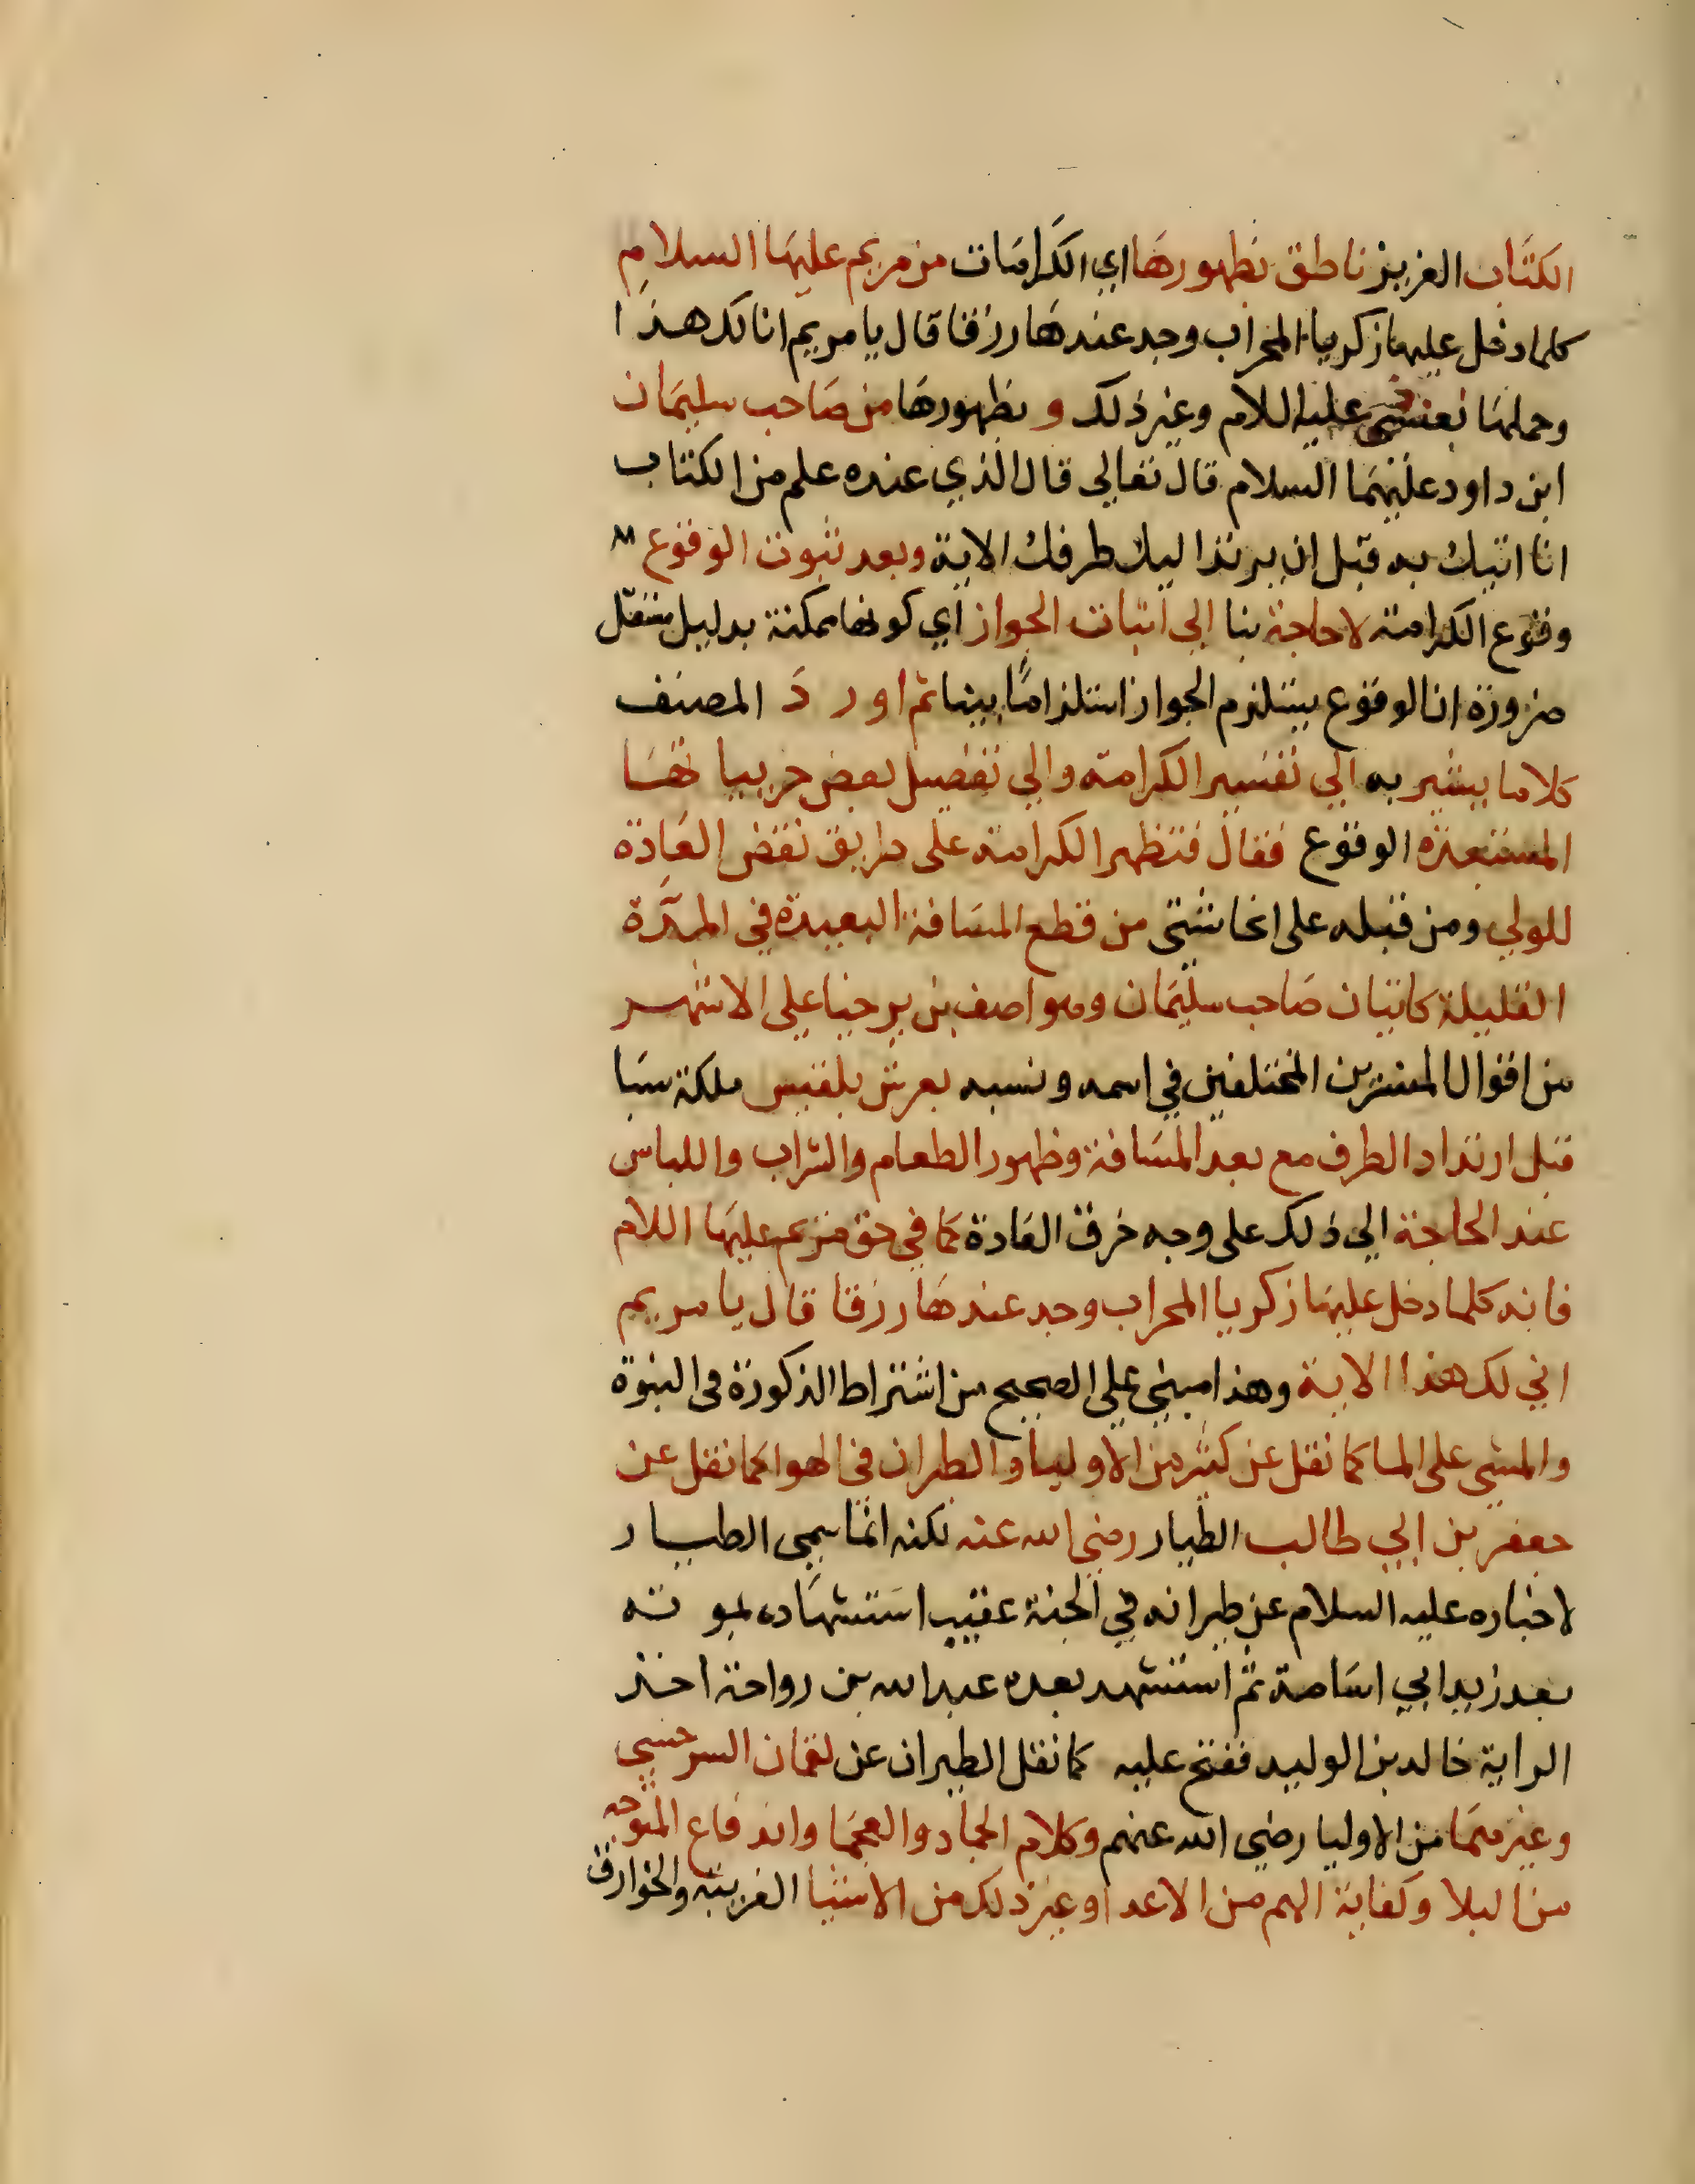 الكتاب العزيز ناطق بظهورها اي الكرامات من مريم عليها السلام
كلما دخل عليها زكريا المحراب وجد عندها رزقا قال يا مريم انا لك هذا
وحملها بعيسى عليه اللام وغير ذلك و بظهورها من صاحب سليمان
ابن داود عليهما السلام قال تعالى قال الذي عنده علم من الكتاب
انا اتيك به قبل ان يرتد اليك طرفك الاية وبعد ثبوت الوقوع
وقوع الكرامة لا حاجة بنا الى اثبات الجواز اي كونها ممكنة بدليل مستقل
ضرورة ان الوقوع يستلزم الجواز استلزاما بينا ثم اورد المصنف
كلاما يشير به الي تفسير الكرامة والي تفصيل بعض جزيياتها
المستبعدة الوقوع فقال فتظهر الكرامة على طريق نقض العادة
للولي ومن قبله على انحا شتى من قطع المسافة البعيدة في المدة
القليلة كاتيان صاحب سليمان وهو اصف بن برخيا على الاشهر
من اقوال المفسرين المختلفين في اسمه ونسبه بعرش بلقيس ملكة سبا
قبل ارتداد الطرف مع بعد المسافة وظهور الطعام والشراب واللباس
عند الحاجة الي ذلك على وجه خرق العادة كما في حق مريم عليها اللام
فانه كلما دخل عليها زكريا المحراب وجد عندها رزقا قال يا مريم
اني لك هذا الاية وهذا مبني على الصحيح من اشتراط الذكورة في النبوة
والمشي على الما كما نقل عن كثير من الاوليا والطران في الهوا كما نقل عن
جعفر بن ابي طالب الطيار رضي الله عنه لكنه انما سمي الطيار
لاخباره عليه السلام عن طيرانه في الجنة عقيب استشهاده بموته
بعد زيد ابي اسامة ثم استشهد بعده عبد الله بن رواحة اخذ
الراية خالد بن الوليد ففتح عليه كما نقل الطيران عن لقمان السرخسي
وغيرهما من الاوليا رضي الله عنهم وكلام الجماد والعجما واندفاع المتوجه
من البلا وكفاية المهم من الاعدا وغير ذلك من الاشيا الغريبة والخوارق